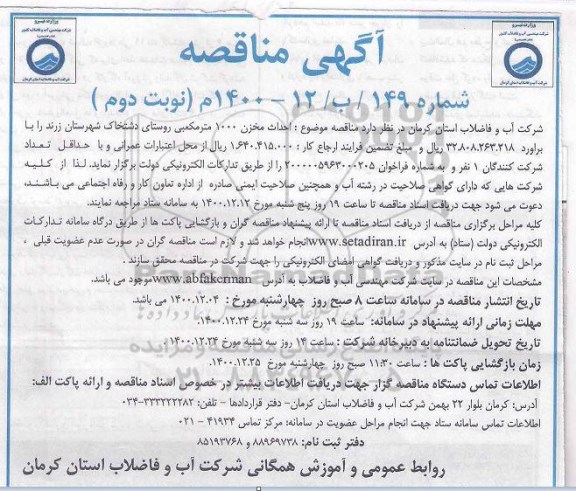 وزارت نیرو
شرکت مهندسی آب و فاضلاب کشور
شرکت آب و فاضلاب استان کرمان
وزارت نیرو
شرکت مهندسی آب و فاضلاب کشور
شرکت آب و فاضلاب استان کرمان
آگهی مناقصه
شماره ۱۴۹/ ب/ ۱۲ – ۱۴۰۰م (نوبت دوم )
شرکت آب و فاضلاب استان کرمان در نظر دارد مناقصه موضوع : احداث مخزن ۱۰۰۰ مترمکعبی روستای دشتخاک شهرستان زرند را با
براورد ۳۲،۸۰۸،۲۶۳،۲۱۸ ریال و مبلغ تضمین فرایند ارجاع کار : ۱،۶۴۰،۴۱۵،۰۰۰ ریال از محل اعتبارات عمرانی و با حداقل تعداد
شرکت کنندگان ۱ نفر و به شماره فراخوان ۲۰۰۰۰۰۵۹۶۳۰۰۰۲۰۵ را از طریق تدارکات الکترونیکی دولت برگزار نماید. لذا از کلیه
شرکت هایی که دارای گواهی صلاحیت در رشته آب و همچنین صلاحیت ایمنی صادره از اداره تعاون کار و رفاه اجتماعی می باشند،
دعوت می شود جهت دریافت اسناد مناقصه تا ساعت ۱۹ روز پنج شنبه مورخ ۱۴۰۰،۱۲،۱۲ به سامانه ستاد مراجعه نمایند.
کلیه مراحل برگزاری مناقصه از دریافت اسناد مناقصه تا ارائه پیشنهاد مناقصه گران و بازگشایی پاکت ها از طریق درگاه سامانه تدارکات
الکترونیکی دولت (ستاد) به آدرس www.setadiran.ir انجام خواهد شد و لازم است مناقصه گران در صورت عدم عضویت قبلی ،
مراحل ثبت نام در سایت مذکور و دریافت گواهی امضای الکترونیکی را جهت شرکت در مناقصه محقق سازند .
مشخصات این مناقصه در سایت شرکت مهندسی آب و فاضلاب به آدرس www.abfakerman موجود می باشد.
تاریخ انتشار مناقصه در سامانه ساعت ۸ صبح روز چهارشنبه مورخ : ۱۴۰۰،۱۲،۰۴ می باشد.
مهلت زمانی ارائه پیشنهاد در سامانه: ساعت ۱۹ روز سه شنبه مورخ ۱۴۰۰،۱۲،۲۴
تاریخ تحویل ضمانتنامه به دبیرخانه شرکت : ساعت ۱۴ روز سه شنبه مورخ ۱۴۰۰،۱۲،۲۴
زمان بازگشایی پاکت ها : ساعت ۱۱:۳۰ صبح روز چهارشنبه مورخ ۱۴۰۰،۱۲،۲۵
اطلاعات تماس دستگاه مناقصه گزار جهت دریافت اطلاعات بیشتر در خصوص اسناد مناقصه و ارائه پاکت الف:
آدرس: کرمان بلوار ۲۲ بهمن شرکت آب و فاضلاب استان کرمان- دفتر قراردادها - تلفن: ۳۳۲۲۲۲۸۲-۰۳۴
اطلاعات تماس سامانه ستاد جهت انجام مراحل عضویت در سامانه: مرکز تماس ۴۱۹۳۴ - ۰۲۱
دفتر ثبت نام: ۸۸۹۶۹۷۳۸ و ۸۵۱۹۳۷۶۸
روابط عمومی و آموزش همگانی شرکت آب و فاضلاب استان کرمان